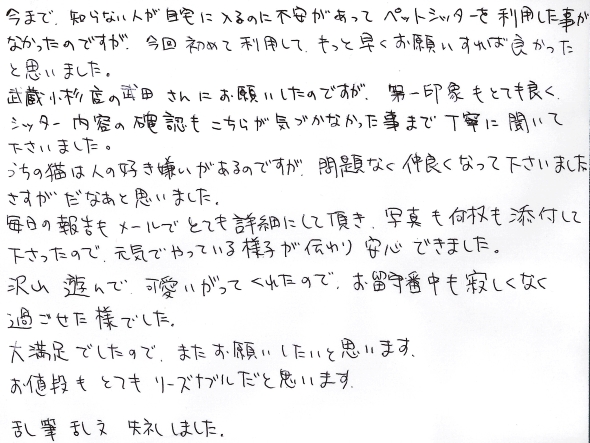 今まで、知らない人が自宅に入るのに不安があって ペットシッターを利用した事が
なかったのですが、今回初めて利用して、もっと早くお願いすれば良かった
と思いました。
武蔵小杉店の武田さんにお願いしたのですが、第一印象もとても良く、
シッター内容の確認もこちらが気づかなかった事まで丁寧に聞いて
下さいました。
うちの猫は人の好き嫌いがあるのですが、問題なく仲良くなって下さいました
さすがだなあと思いました。
毎日の報告もメールでとても詳細にして頂き、写真も何枚も添付して
下さったので、元気でやっている様子が伝わり安心できました。
沢山遊んで、可愛いがってくれたので、お留守番中も寂しくなく
過ごせた様でした。
大満足でしたので、またお願いしたいと思います。
お値段もとてもリーズナブルだと思います。
乱筆乱文 失礼しました。